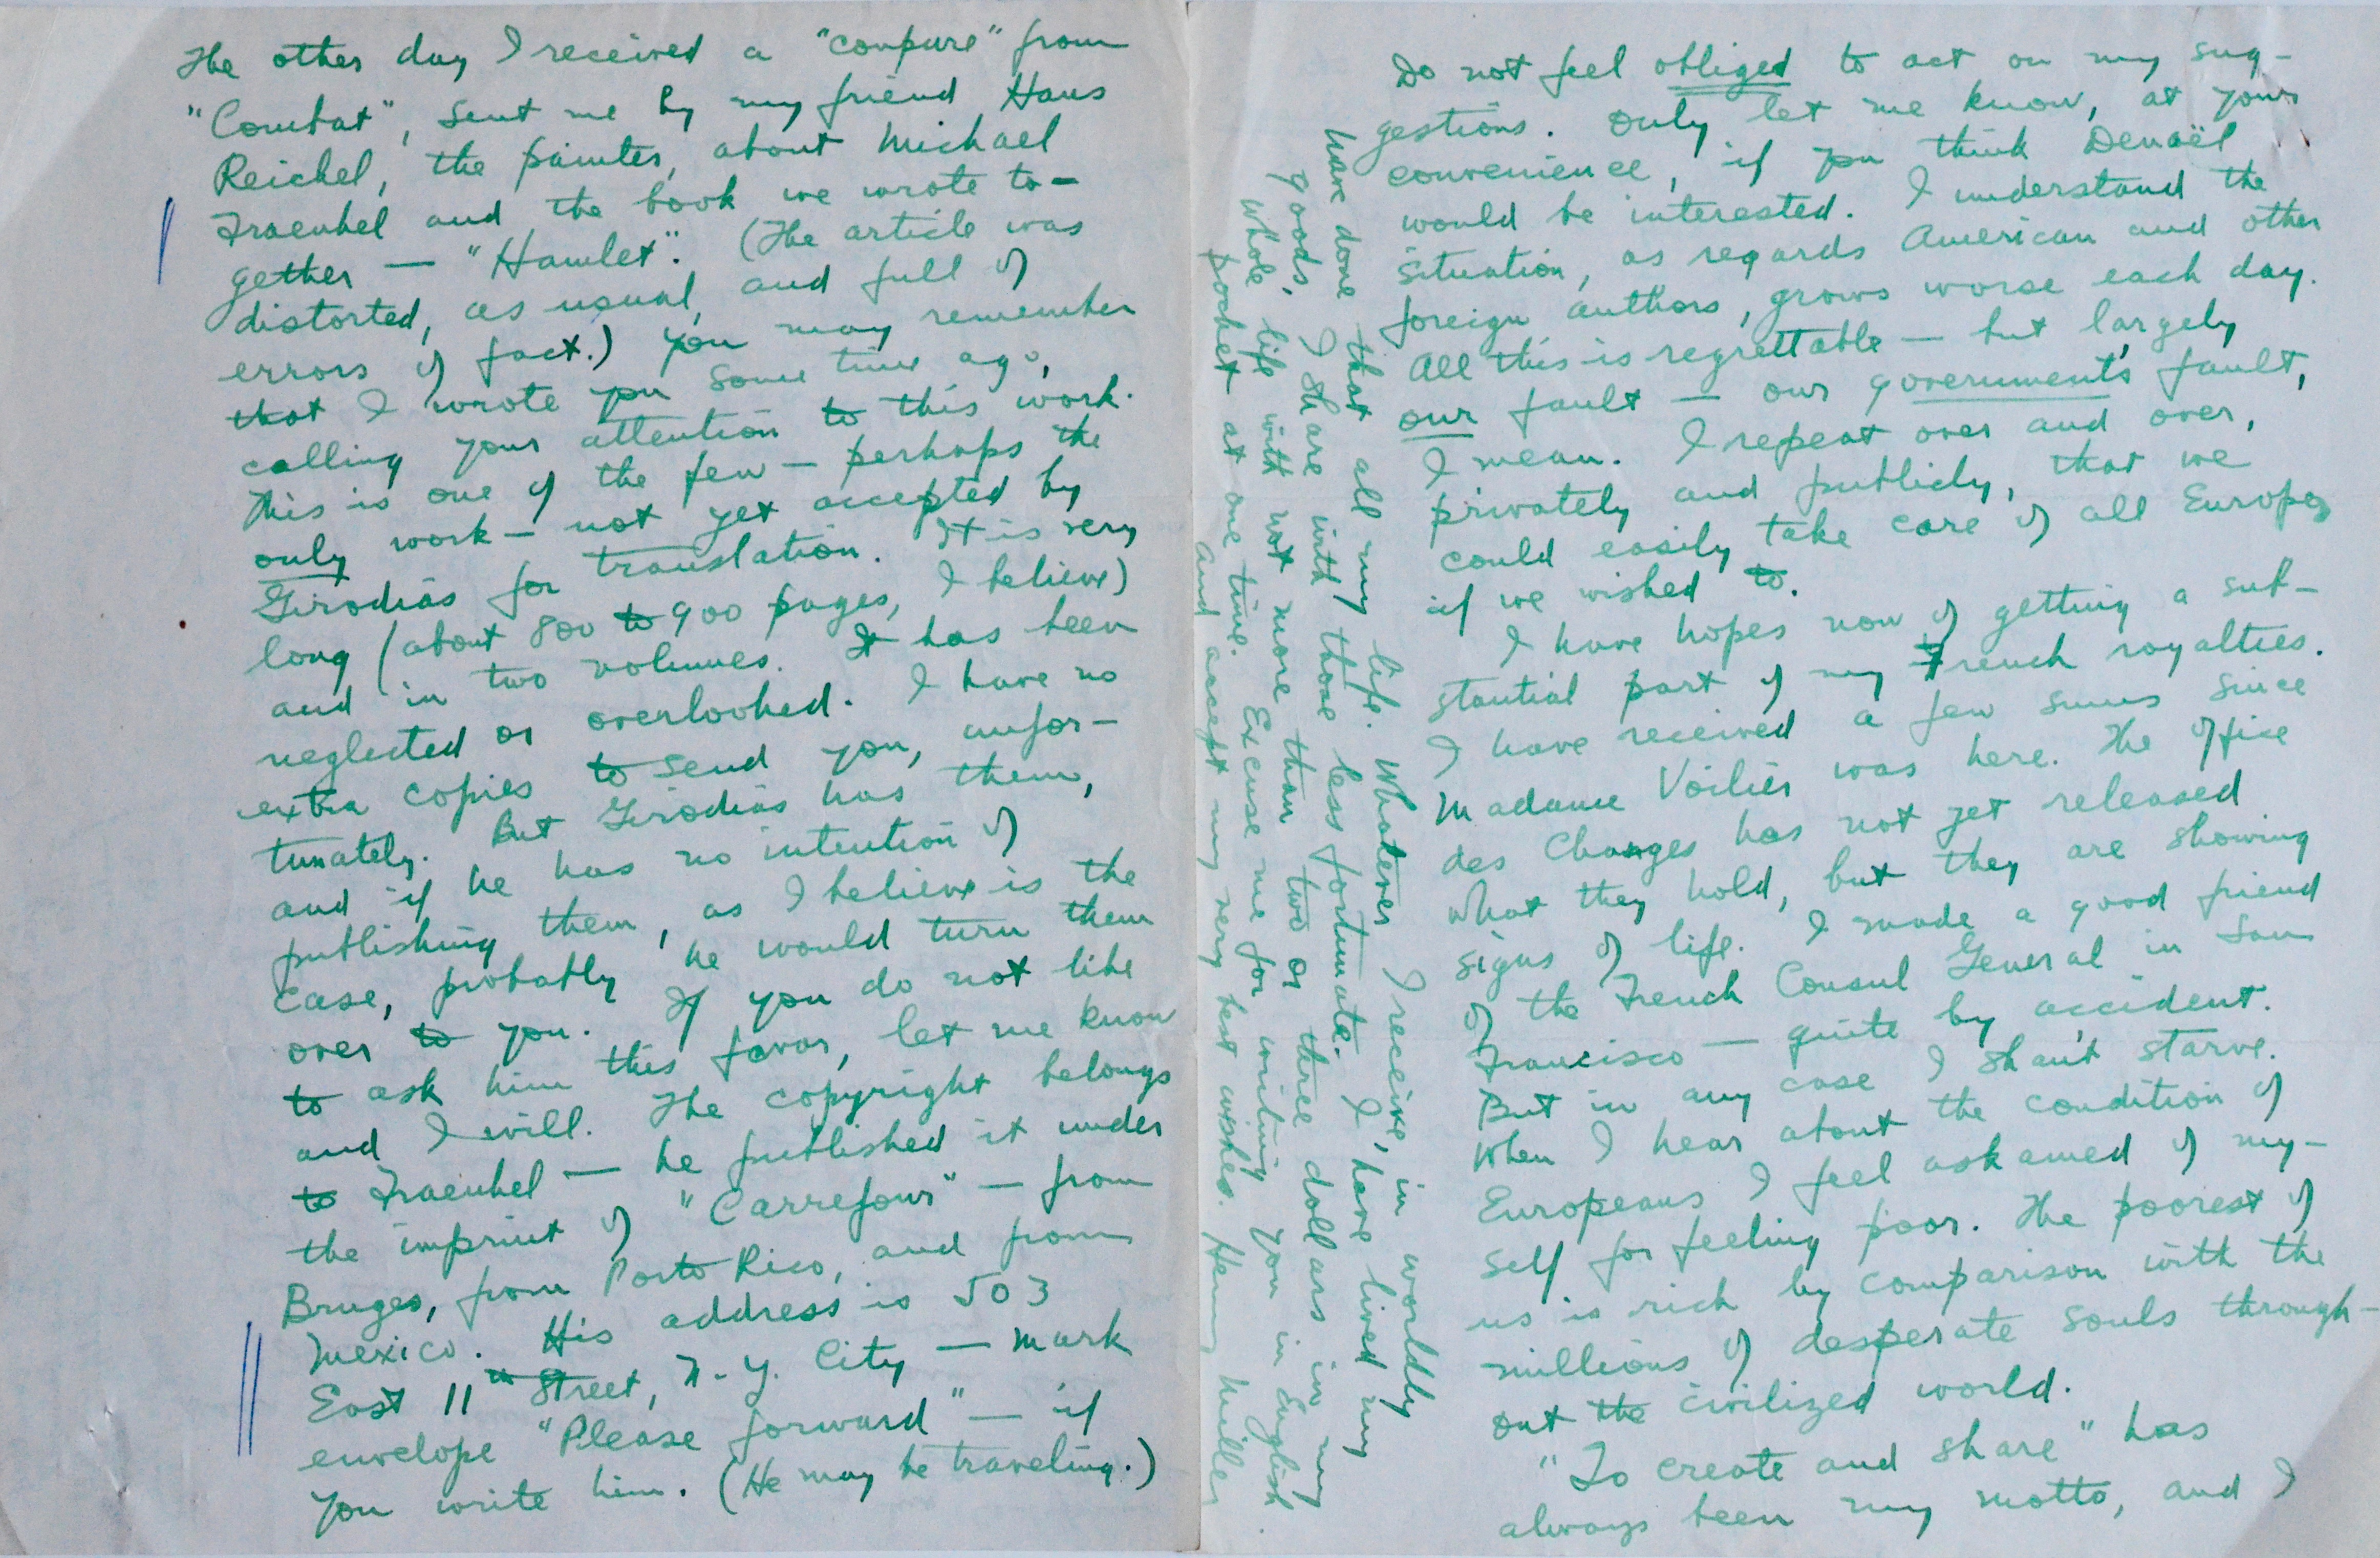 The other day I received a "coupure" from
"Combat", sent me by my friend Hans
Reichel, the painter, about Michael
Fraenkel and the book we wrote to-
gether — "Hamlet". (The article was
distorted, as usual, and full of
errors of fact.) You may remember
that I wrote you some time ago,
calling your attention to this work.
This is one of the few — perhaps the
only work — not yet accepted by
Girodias for translation. It is very
long (about 800 to 900 pages, I believe)
and in two volumes. It has been
neglected or overlooked. I have no
extra copies to send you, unfor-
tunately. But Girodias has them,
and if he has no intention of
publishing them, as I believe is the
case, probably he would turn them
over to you. If you do not like
to ask him this favor, let me know
and I will. The copyright belongs
to Fraenkel — he published it under
the imprint of "Carrefour" — from
Bruges, from Porto Rico, and from
Mexico. His address is 503
East 11th Street, N.Y. City — mark
envelope "Please forward" — if
you write him. (He may be traveling.)
Do not feel obliged to act on my sug-
gestions. Only let me know, at your
convenience, if you think Denoël
would be interested. I understand the
situation, as regards American and other
foreign authors, grows worse each day.
All this is regrettable — but largely
our fault — our government's fault,
I mean. I repeat over and over,
privately and publicly, that we
could easily take care of all Europe,
if we wished to.
I have hopes now of getting a sub-
stantial part of my French royalties.
I have received a few sums since
Madame Voilier was here. The Office
des Changes has not yet released
what they hold, but they are showing
signs of life. I made a good friend
of the French Consul General in San
Francisco — quite by accident.
But in any case I shan't starve.
When I hear about the condition of
Europeans I feel ashamed of my-
self for feeling poor. The poorest of
us is rich by comparison with the
millions of desperate souls through-
out the civilized world.
"To create and share" has
always been my motto, and I
have done that all my life. Whatever I receive, in worldly
goods, I share with those less fortunate. I have lived my
whole life with not more than two or three dollars in my
pocket at one time. Excuse me for writing you in English.
And accept my very best wishes. Henry Miller